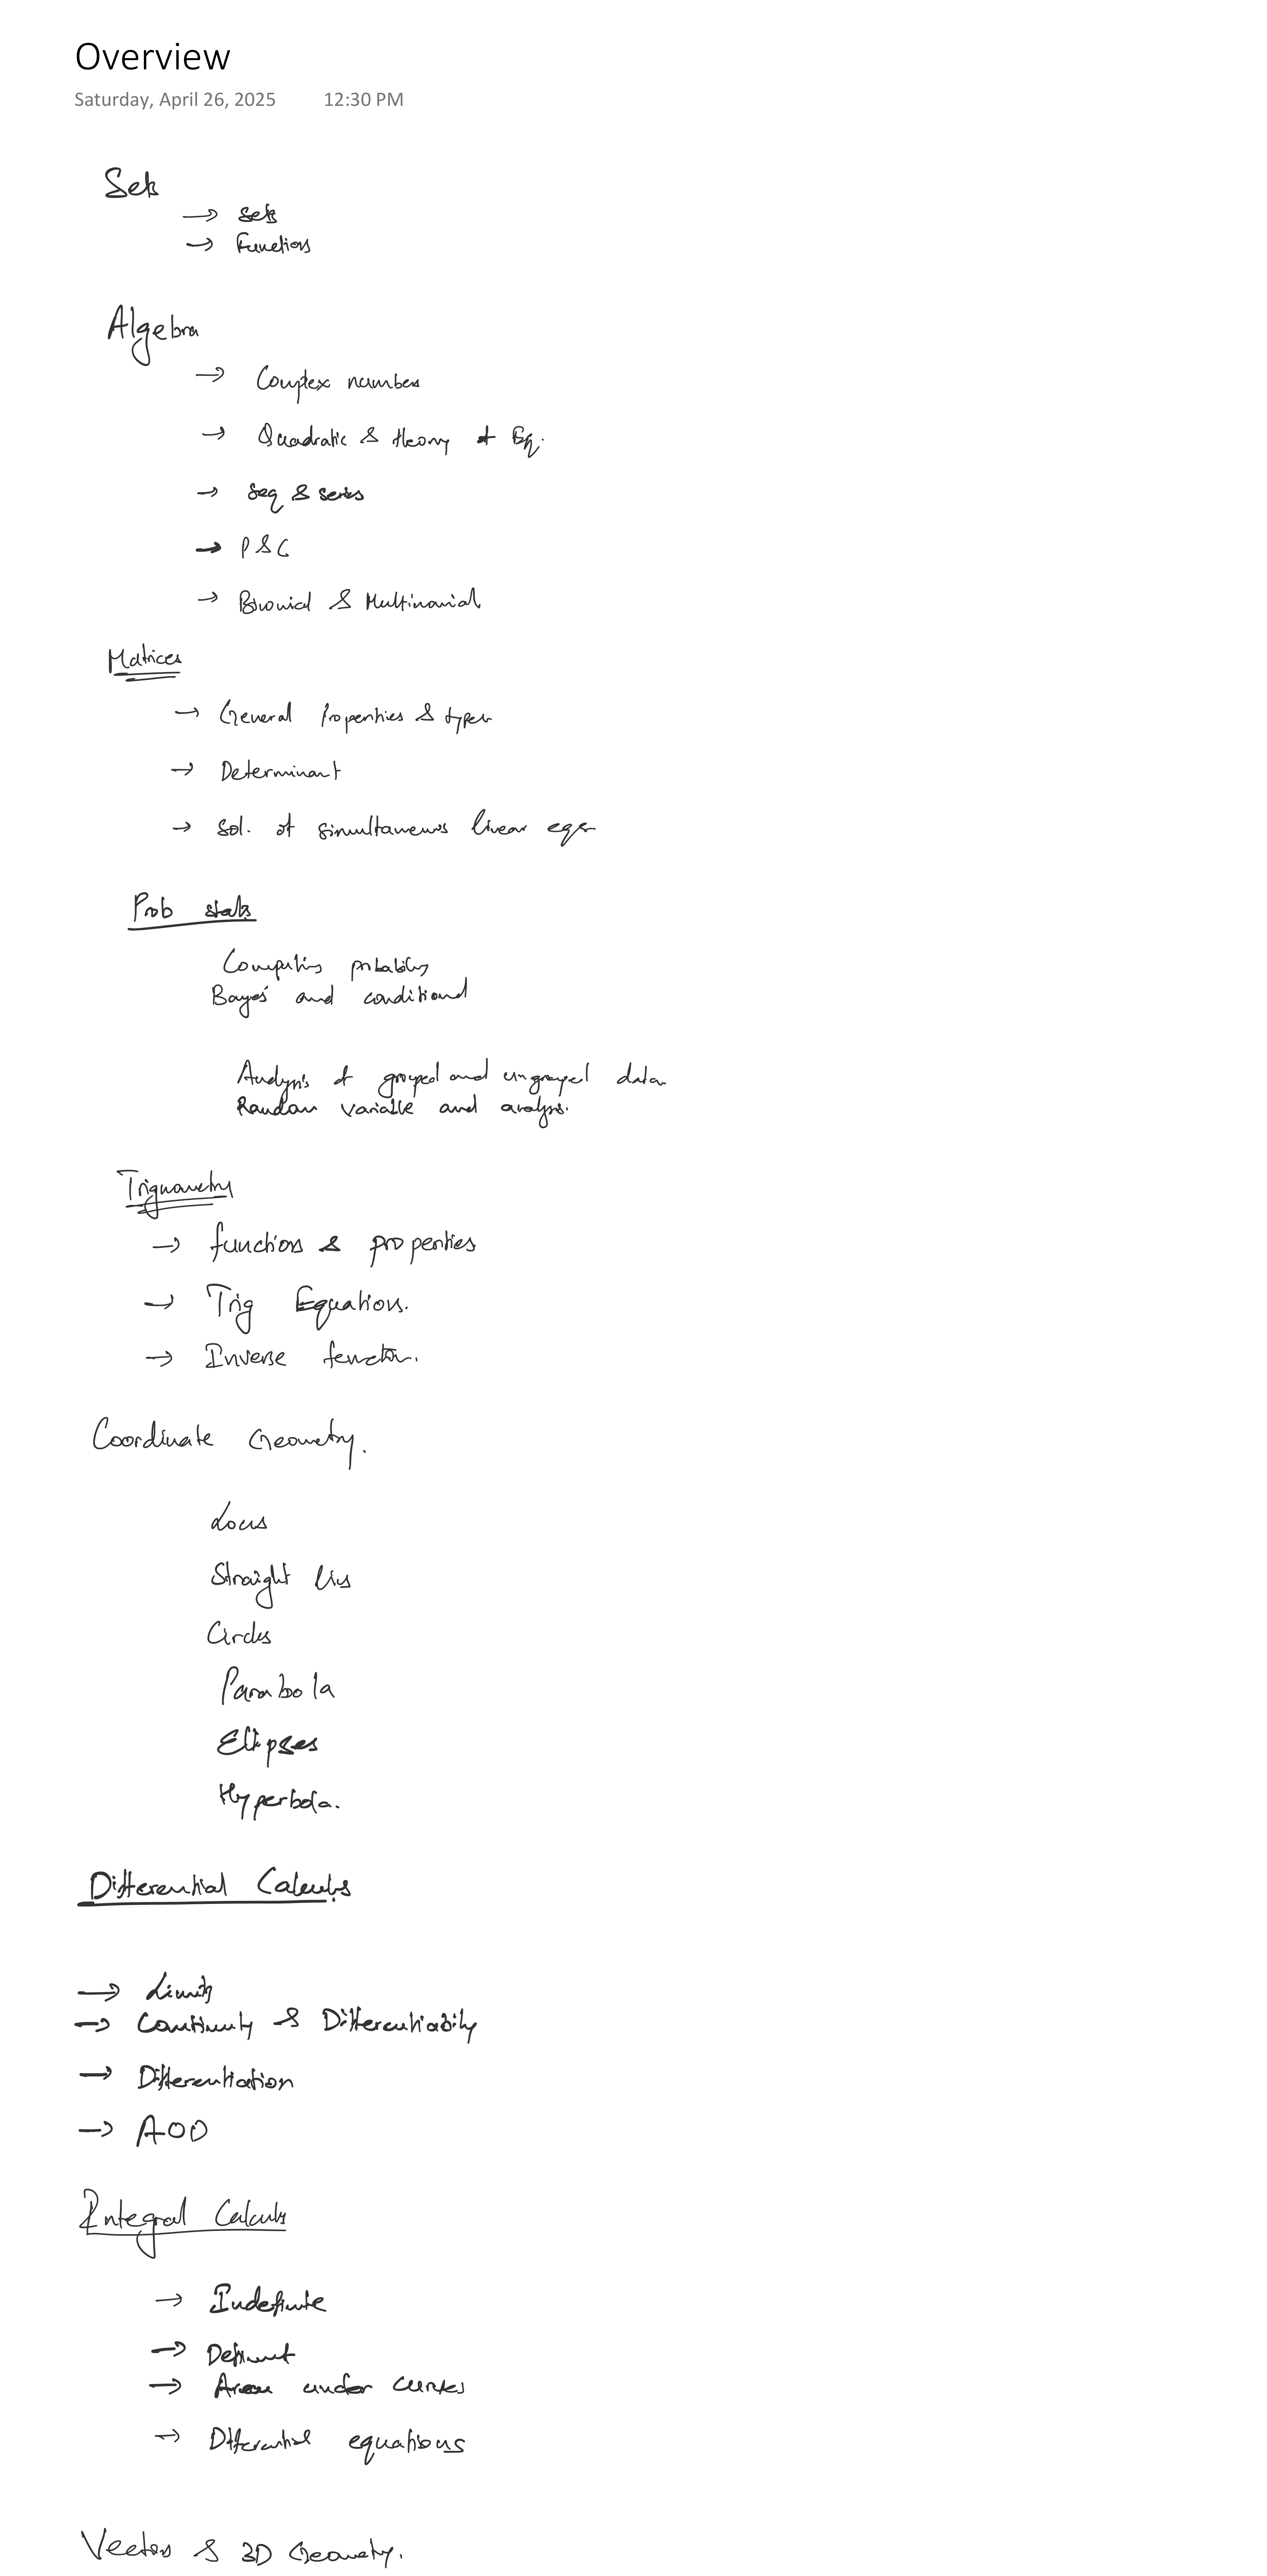 Overview
Saturday, April 26, 2025 12:30 PM
Sets
→ Sets
→ Functions
Algebra
→ Complex numbers
→ Quadratic & theory of Eq.
→ Seq & series
→ P & C
→ Binomial & Multinomial
Matrices
→ General Properties & types
→ Determinant
→ Sol. of simultaneous linear eqs
Prob stats
Computing probability
Bayes' and conditional
Analysis of grouped and ungrouped data
Random variable and analysis.
Trignometry
→ functions & properties
→ Trig Equations.
→ Inverse function.
Coordinate Geometry.
Locus
Straight lines
Circles
Parabola
Ellipses
Hyperbola.
Differential Calculus
→ Limits
→ Continuity & Differentiability
→ Differentiation
→ AOD
Integral Calculus
→ Indefinite
→ Definite
→ Area under curves
→ Differential equations
Vectors & 3D Geometry.